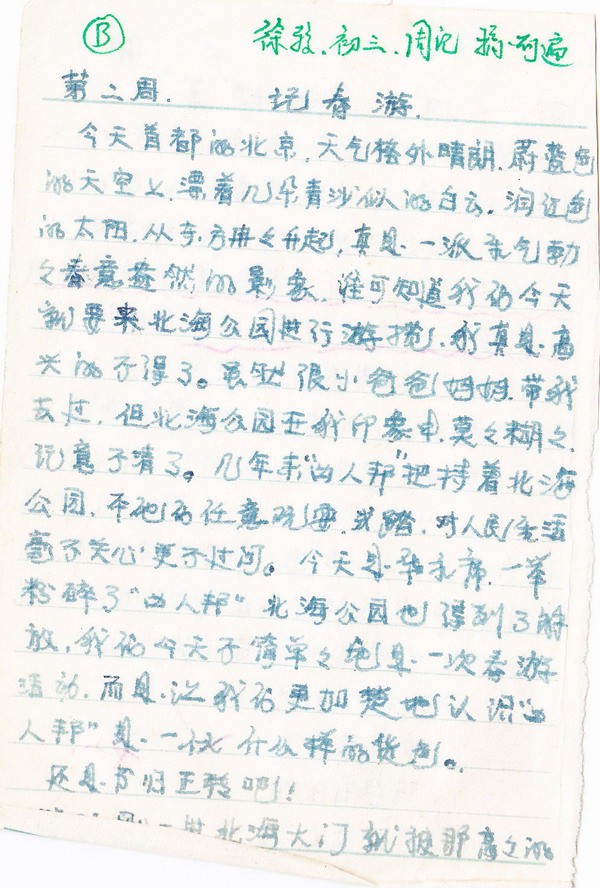 B 徐 初三.周记
第二周. 记春游.
今天首都的北京,天气格外晴朗.蔚蓝色
的天空上,漂着几朵青沙似的白云.润红色
的太阳,从东方冉々升起,真是一派生气勃
々春意盎然的景象,谁可知道我们今天
就要来北海公园进行游揽,我真是高
兴的不得了。虽然很小爸爸妈妈.带我
去过,但北海公园在我印象中,莫々糊々.
记意不清了。几年来"四人邦"把持着北海
公园,不他们任意玩耍.践踏,对人民生活
毫不关心更不过问。今天是华主席,一举
粉碎了"四人邦"北海公园也得到了解
放,我们今天不简单々绝是一次春游
活动,而是让我们更加楚地认识"四
人邦"是一伙什么样的货色。
还是书归正转吧!
一进北海大门就被那高々的